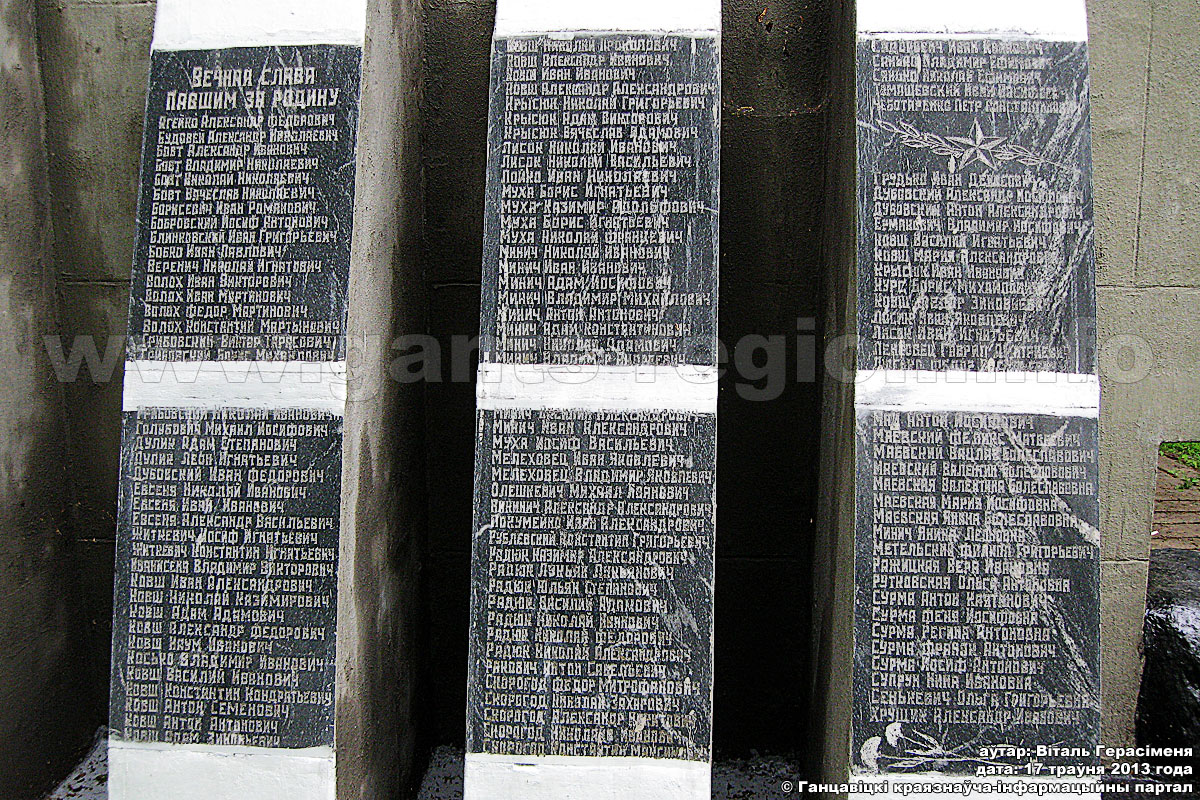 Вечная слава
павшим за Родину
Агейко Александр Федорович
Будовей Александр Николаевич
Бовт Александр Иванович
Бовт Владимир Николаевич
Бовт Николай Николаевич
Бовт Вячеслав Николаевич
Борисевич Иван Романович
Бобровский Иосиф Антонович
Блинковский Иван Григорьевич
Бобко Иван Павлович
Веренич Николай Игнатович
Волох Иван Викторович
Волох Иван Мартинович
Волох Федор Мартинович
Волох Константин Мартынович
Грибовский Виктор Тарасович
Михайлович
Грибовский Николай Иванович
Голубович Михаил Иосифович
Дулик Адам Степанович
Дулик Леон Игнатьевич
Дубовский Иван Федорович
Евсеня Николай Иванович
Евсеня Иван Иванович
Евсеня Александр Васильевич
Житкевич Иосиф Игнатьевич
Житкевич Константин Игнатьевич
Владимир Викторович
Ковш Иван Александрович
Ковш Николай Казимирович
Ковш Адам Адамович
Ковш Александр Федорович
Ковш Наум Иванович
Косько Владимир Иванович
Ковш Василий Иванович
Ковш Константин Кондратьевич
Ковш Антон Семенович
Ковш Антон Антонович
Ковш Адам
Ковш Николай Прокопович
Ковш Александр Иванович
Ковш Иван Иванович
Ковш Александр Александрович
Крысюк Николай Григорьевич
Крысюк Адам Викторович
Крысюк Вячеслав Адамович
Лисок Николай Иванович
Лисок Николай Васильевич
Лойко Иван Николаевич
Муха Борис Игнатьевич
Муха Казимир Адольфович
Муха Борис Игнатьевич
Муха Николай Францевич
Минич Николай Иванович
Минич Иван Иванович
Минич Адам Иосифович
Минич Владимир Михайлович
Минич Антон Антонович
Минич Адам Константинович
Минич Николай Адамович
Минич
Минич Александрович
Минич Иван Александрович
Муха Иосиф Васильевич
Мелеховец Иван Яковлевич
Мелеховец Владимир Яковлевич
Олешкевич Михаил Иванович
Александр Александрович
Покумейко Иван Александрович
Рублевский Константин Григорьевич
Радюк Казимир Александрович
Радюк Лукьян Лукьянович
Радюк Юльян Степанович
Радюк Василий Адамович
Радюк Николай Иванович
Радюк Николай Федорович
Радюк Николай Александрович
Ракович Антон Савельевич
Скорогод Федор Митрофанович
Скорогод Николай Захарович
Скорогод Александр
Скорогод Николай Иванович
Скорогод Константин
Сидоревич Иван Иванович
Владимир Ефимович
Николай Ефимович
Томашевский Иван Иосифович
Чеботаренко Петр Константинович
Грудько Иван Денисович
Дубовский Александр
Дубовский Антон Александрович
Ермакович Владимир Иосифович
Ковш Василий Игнатьевич
Ковш Мария Александровна
Крысюк Иван Иванович
Курс Борис Михайлович
Ковш Федор Зиновьевич
Лисок Яков Яковлевич
Лисок Иван Игнатьевич
Гаврил Дмитриевич
Май Антон Иосифович
Маевский Феликс Матвеевич
Маевский Вацлав Болеславович
Маевский Валентин Болеславович
Маевская Валентина Болеславовна
Маевская Мария Иосифовна
Маевская Янина Болеславовна
Минич Янина Леоновна
Метельский Филипп Григорьевич
Ражицкая Вера Ивановна
Рутковская Ольга Антоновна
Сурма Антон
Сурма Феня Иосифовна
Сурма Регина Антоновна
Сурма Франек Антонович
Сурма Иосиф Антонович
Супрун Нина Ивановна
Сенькевич Ольга Григорьевна
Хрущик Александр Иванович
www.gants-region.info
аутар: Віталь Герасіменя
дата: 17 траўня 2013 года
© Ганцавіцкі краязнаўча-інфармацыйны партал